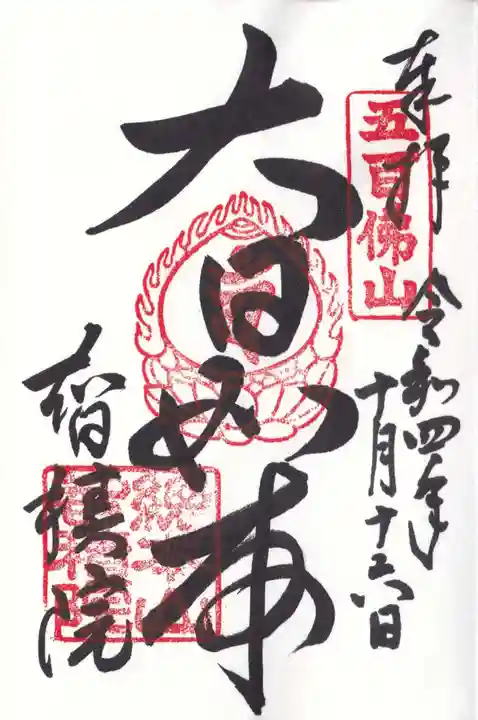 奉拝
令和四年
十月十六日
五百佛山
大日如来
智積院